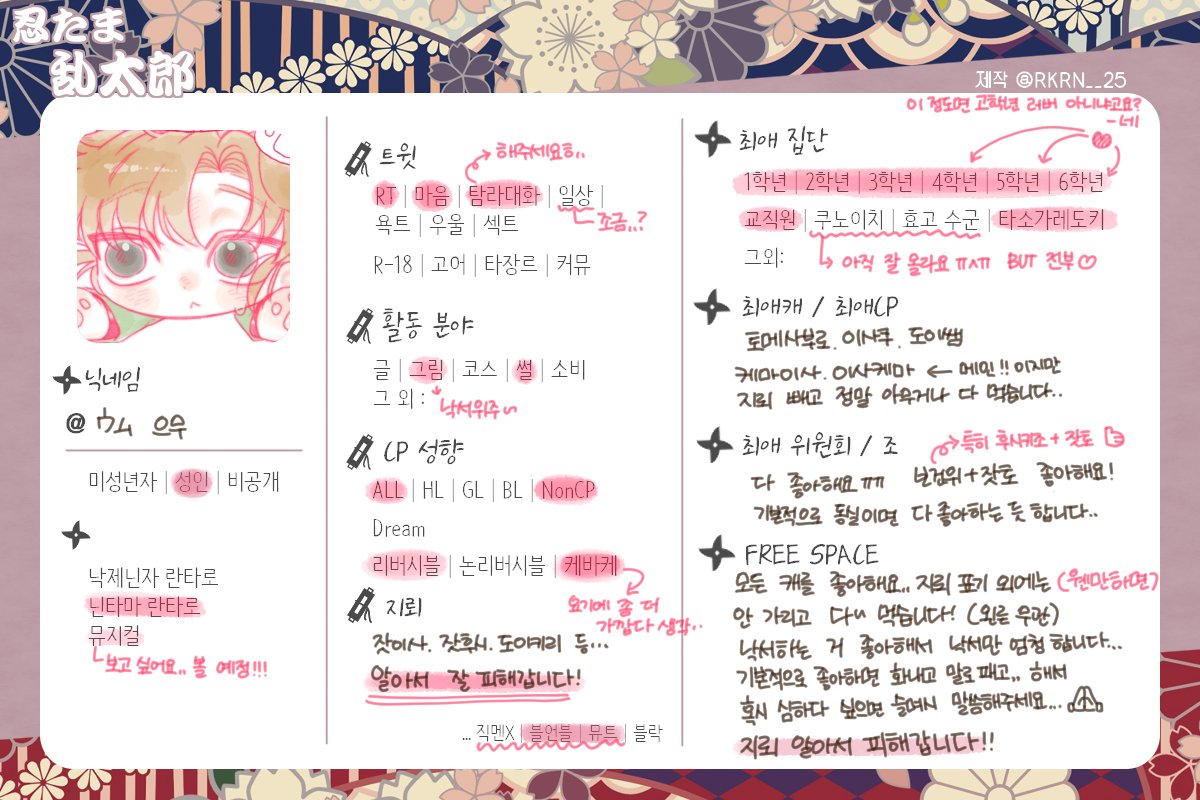 忍たま
乱太郎
제작 @RKRN__25
닉네임
@ 으우
미성년자 | 성인 | 비공개
낙제닌자 란타로
닌타마 란타로
뮤지컬
보고 싶어요.. 볼 예정!!!
트윗
해주세요ㅎ..
RT | 마음 | 탐라대화 | 일상 |
조금..?
욕트 | 우울 | 섹트
R-18 | 고어 | 타장르 | 커뮤
활동 분야
글 | 그림 | 코스 | 썰 | 소비
그 외 :
낙서위주~
CP 성향
ALL | HL | GL | BL | NonCP
Dream
리버시블 | 논리버시블 | 케바케
요기에 좀 더
가깝다 생각..
지뢰
잣이사. 잣후시. 도이키리 등...
알아서 잘 피해갑니다!
... 직멘X | 블언블 | 뮤트 | 블락
이 정도면 고학년 러버 아니냐고요?
-네
최애 집단
1학년 | 2학년 | 3학년 | 4학년 | 5학년 | 6학년
교직원 | 쿠노이치 | 효고 수군 | 타소가레도키
그외:
아직 잘 몰라요 ㅠㅅㅠ BUT 전부♡
최애캐 / 최애CP
토메사부로. 이사쿠. 도이쌤
케마이사. 이사케마 ← 메인!! 이지만
지뢰 빼고 정말 아무거나 다 먹습니다..
최애 위원회 / 조
특히 후시키조+잣토
다 좋아해요ㅠㅠ 보건위+잣토 좋아해요!
기본적으로 동실이면 다 좋아하는 듯 합니다..
FREE SPACE
모든 캐를 좋아해요.. 지뢰 표기 외에는 (웬만하면)
안 가리고 다~ 먹습니다! (왼른 무관)
낙서하는 거 좋아해서 낙서만 엄청 합니다...
기본적으로 좋아하면 화내고 말로패고.. 해서
혹시 심하다 싶으면 슬며시 말씀해주세요...
지뢰 알아서 피해갑니다!!